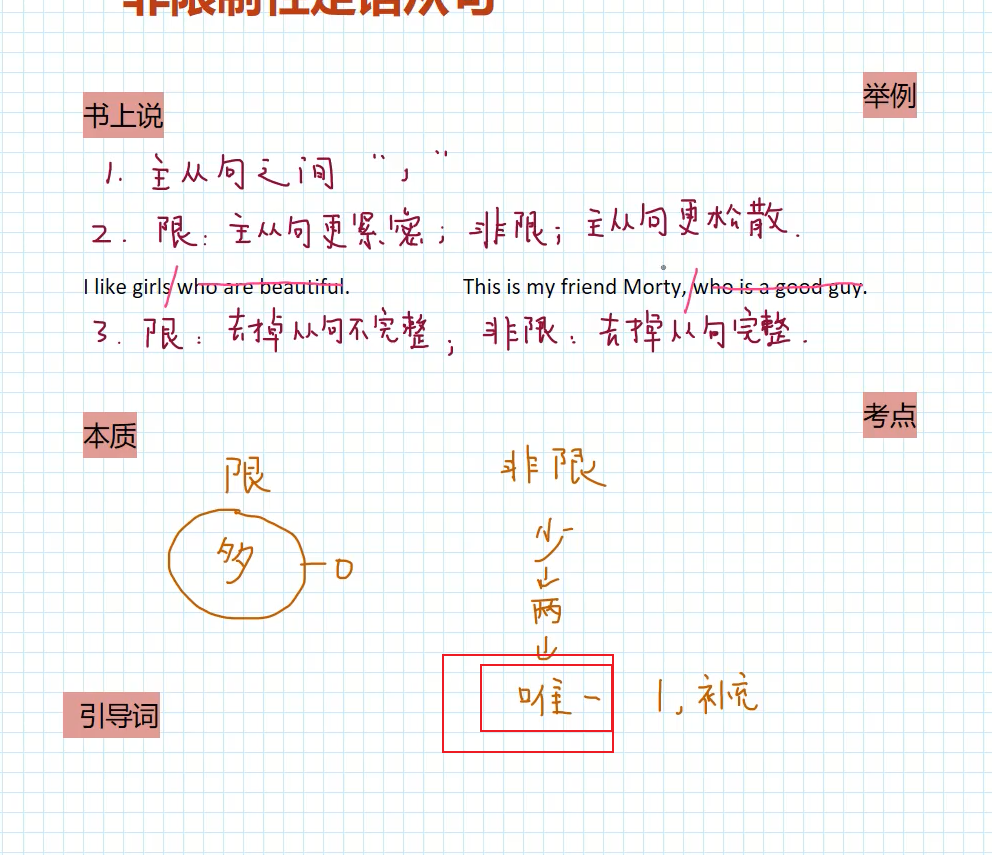 非限制性定语从句
书上说
举例
1. 主从句之间 “，”
2. 限：主从句更紧密；非限；主从句更松散.
I like girls who are beautiful. This is my friend Morty, who is a good guy.
3. 限：去掉从句不完整；非限：去掉从句完整.
本质
考点
限 非限
多 - 0
少
↓
两
↓
唯一 1, 补充
引导词